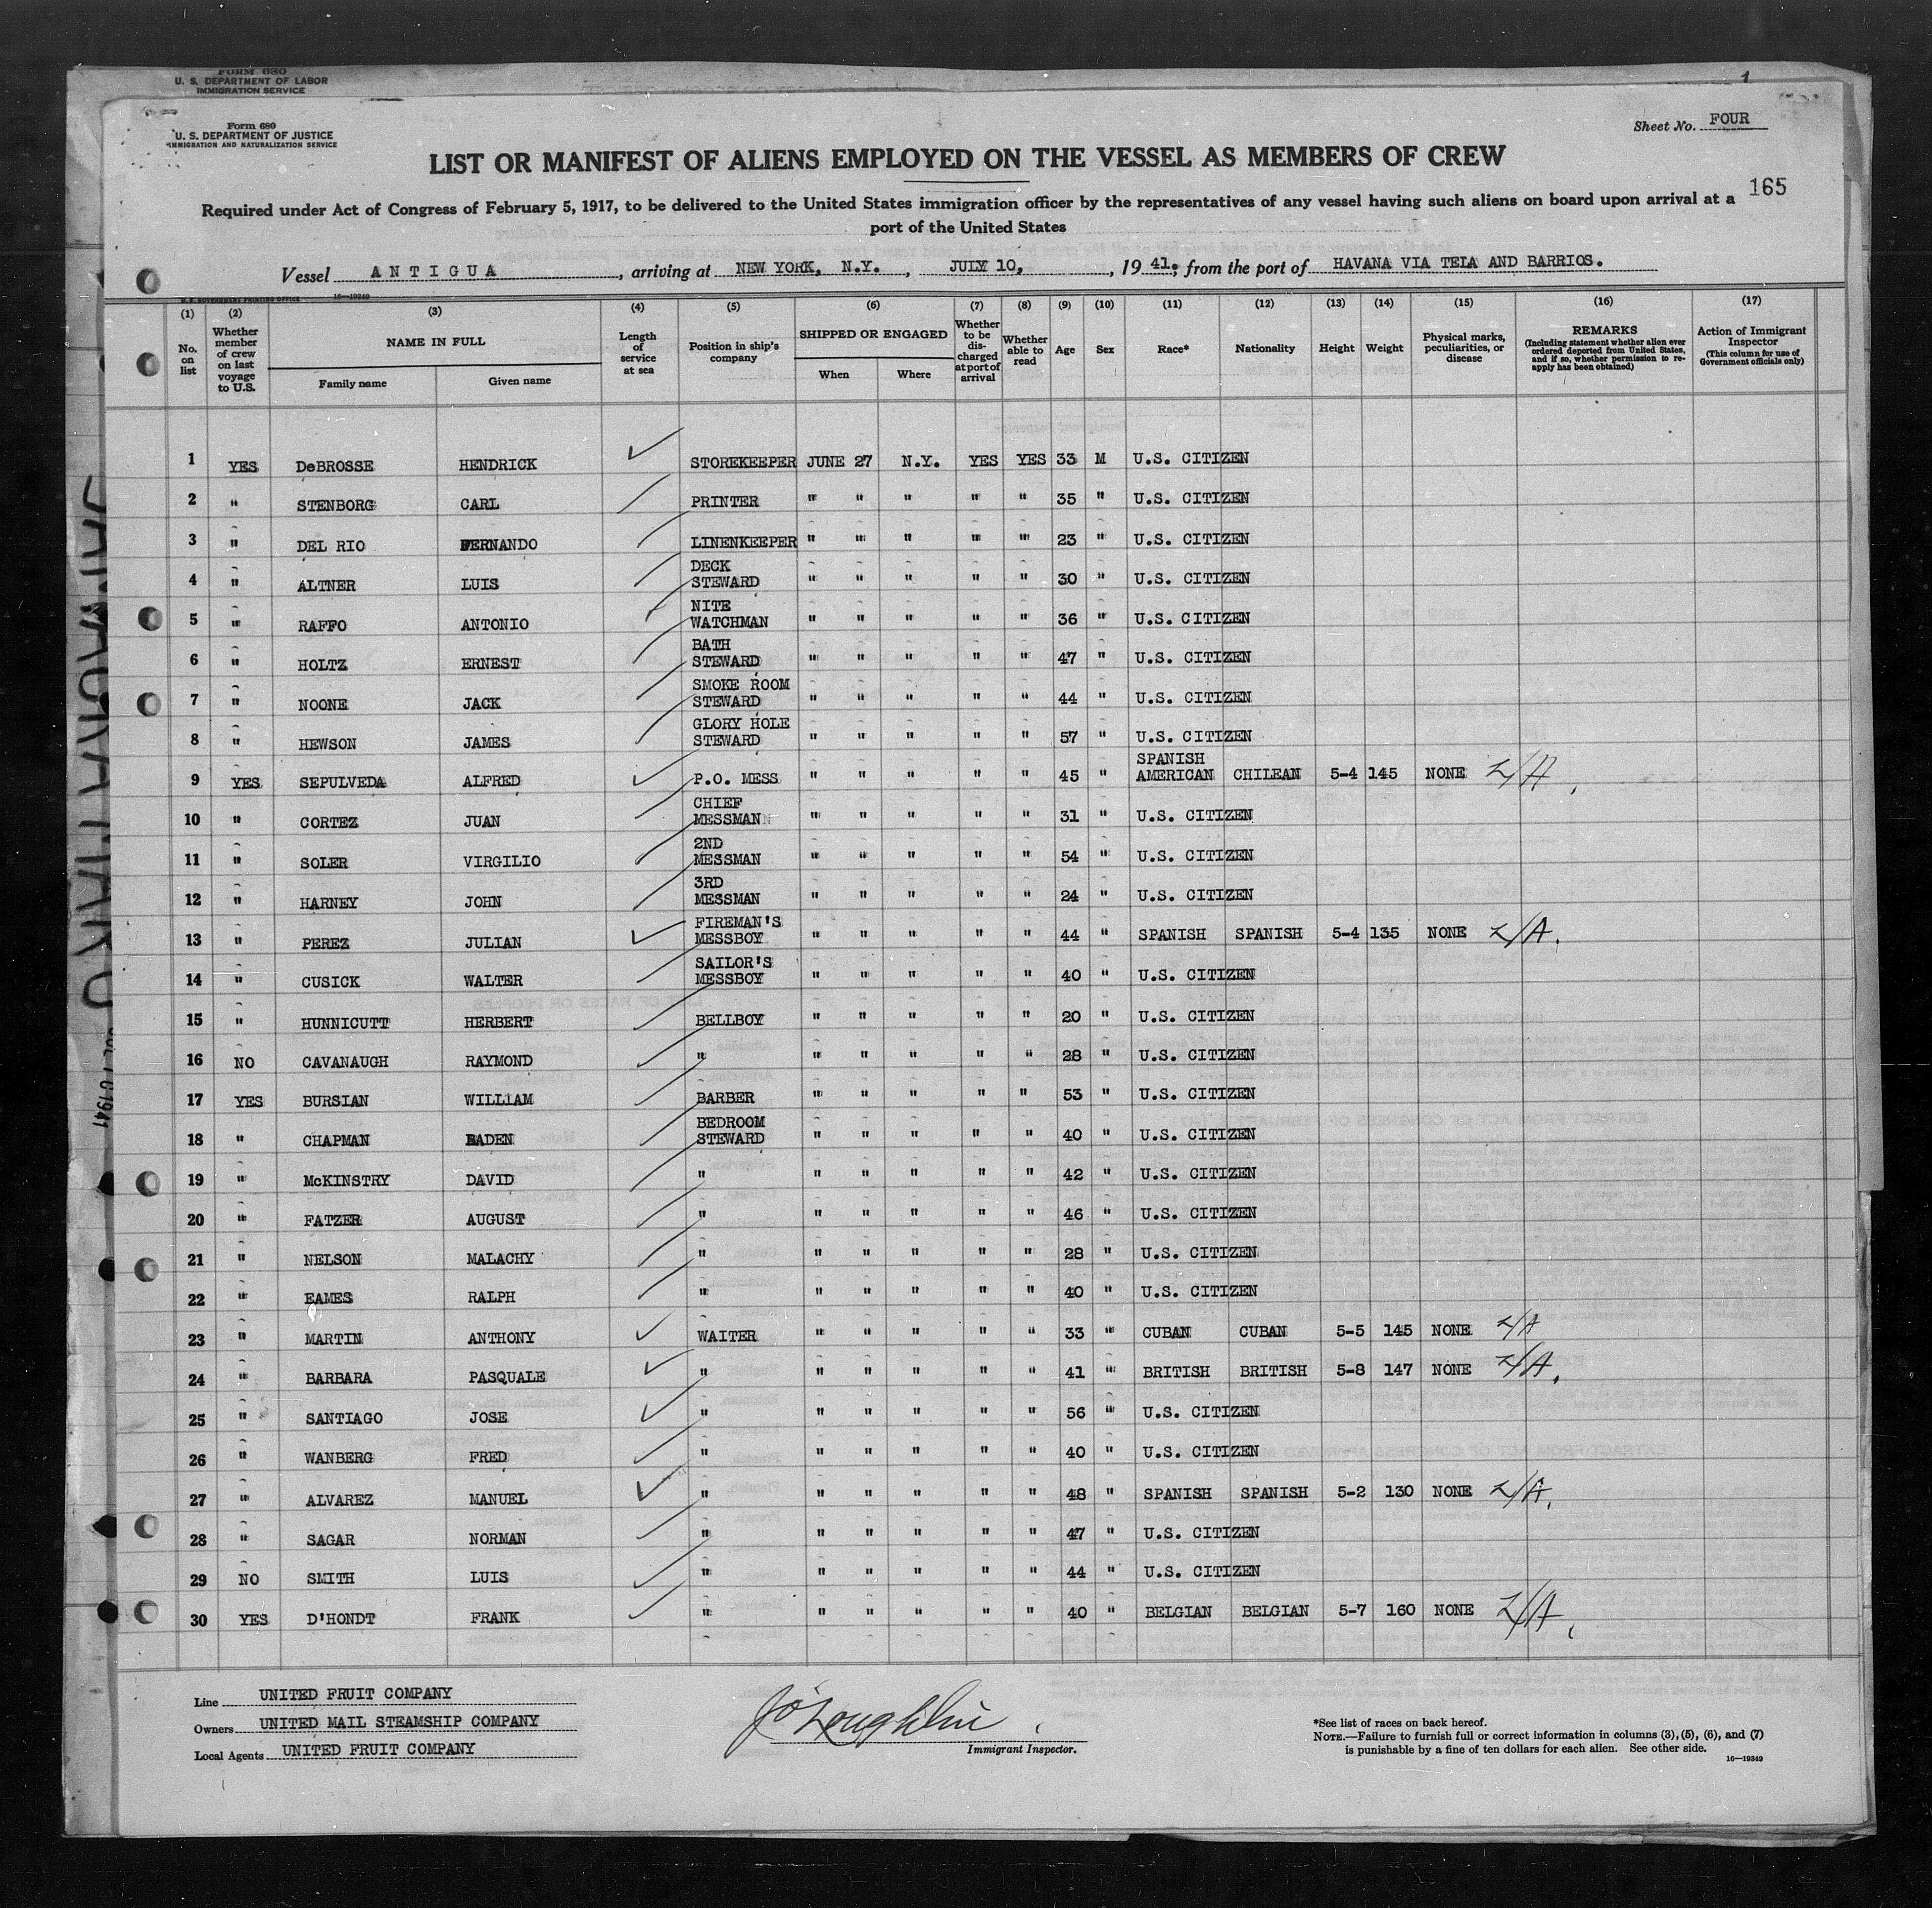 FORM 680
U. S. DEPARTMENT OF LABOR
IMMIGRATION SERVICE
1
Form 680
U. S. DEPARTMENT OF JUSTICE
IMMIGRATION AND NATURALIZATION SERVICE
Sheet No. FOUR
LIST OR MANIFEST OF ALIENS EMPLOYED ON THE VESSEL AS MEMBERS OF CREW
165
Required under Act of Congress of February 5, 1917, to be delivered to the United States immigration officer by the representatives of any vessel having such aliens on board upon arrival at a
port of the United States
Vessel ANTIGUA, arriving at NEW YORK, N.Y., JULY 10, 1941, from the port of HAVANA VIA TELA AND BARRIOS.
U. S. GOVERNMENT PRINTING OFFICE 16—19349
(1) No. on list (2) Whether member of crew on last voyage to U.S. (3) NAME IN FULL Family name Given name (4) Length of service at sea (5) Position in ship's company (6) SHIPPED OR ENGAGED When Where (7) Whether to be discharged at port of arrival (8) Whether able to read (9) Age (10) Sex (11) Race* (12) Nationality (13) Height (14) Weight (15) Physical marks, peculiarities, or disease (16) REMARKS (Including statement whether alien ever ordered deported from United States, and if so, whether permission to reapply has been obtained) (17) Action of Immigrant Inspector (This column for use of Government officials only)
1 YES DeBROSSE HENDRICK STOREKEEPER JUNE 27 N.Y. YES YES 33 M U.S. CITIZEN
2 " STENBORG CARL PRINTER " " " " " 35 " U.S. CITIZEN
3 " DEL RIO FERNANDO LINENKEEPER " " " " " 23 " U.S. CITIZEN
4 " ALTNER LUIS DECK STEWARD " " " " " 30 " U.S. CITIZEN
5 " RAFFO ANTONIO NITE WATCHMAN " " " " " 36 " U.S. CITIZEN
6 " HOLTZ ERNEST BATH STEWARD " " " " " 47 " U.S. CITIZEN
7 " NOONE JACK SMOKE ROOM STEWARD " " " " " 44 " U.S. CITIZEN
8 " HEWSON JAMES GLORY HOLE STEWARD " " " " " 57 " U.S. CITIZEN
9 YES SEPULVEDA ALFRED P.O. MESS " " " " " 45 " SPANISH AMERICAN CHILEAN 5-4 145 NONE
10 " CORTEZ JUAN CHIEF MESSMAN " " " " " 31 " U.S. CITIZEN
11 " SOLER VIRGILIO 2ND MESSMAN " " " " " 54 " U.S. CITIZEN
12 " HARNEY JOHN 3RD MESSMAN " " " " " 24 " U.S. CITIZEN
13 " PEREZ JULIAN FIREMAN'S MESSBOY " " " " " 44 " SPANISH SPANISH 5-4 135 NONE
14 " CUSICK WALTER SAILOR'S MESSBOY " " " " " 40 " U.S. CITIZEN
15 " HUNNICUTT HERBERT BELLBOY " " " " " 20 " U.S. CITIZEN
16 NO CAVANAUGH RAYMOND " " " " " " 28 " U.S. CITIZEN
17 YES BURSIAN WILLIAM BARBER " " " " " 53 " U.S. CITIZEN
18 " CHAPMAN BADEN BEDROOM STEWARD " " " " " 40 " U.S. CITIZEN
19 " McKINSTRY DAVID " " " " " " 42 " U.S. CITIZEN
20 " FATZER AUGUST " " " " " " 46 " U.S. CITIZEN
21 " NELSON MALACHY " " " " " " 28 " U.S. CITIZEN
22 " EAMES RALPH " " " " " " 40 " U.S. CITIZEN
23 " MARTIN ANTHONY WAITER " " " " " 33 " CUBAN CUBAN 5-5 145 NONE
24 " BARBARA PASQUALE " " " " " " 41 " BRITISH BRITISH 5-8 147 NONE
25 " SANTIAGO JOSE " " " " " " 56 " U.S. CITIZEN
26 " WANBERG FRED " " " " " " 40 " U.S. CITIZEN
27 " ALVAREZ MANUEL " " " " " " 48 " SPANISH SPANISH 5-2 130 NONE
28 " SAGAR NORMAN " " " " " " 47 " U.S. CITIZEN
29 NO SMITH LUIS " " " " " " 44 " U.S. CITIZEN
30 YES D'HONDT FRANK " " " " " " 40 " BELGIAN BELGIAN 5-7 160 NONE
Line UNITED FRUIT COMPANY
Owners UNITED MAIL STEAMSHIP COMPANY
Local Agents UNITED FRUIT COMPANY
J O'Loughlin
Immigrant Inspector.
*See list of races on back hereof.
NOTE.—Failure to furnish full or correct information in columns (3), (5), (6), and (7)
is punishable by a fine of ten dollars for each alien. See other side.
16—19349